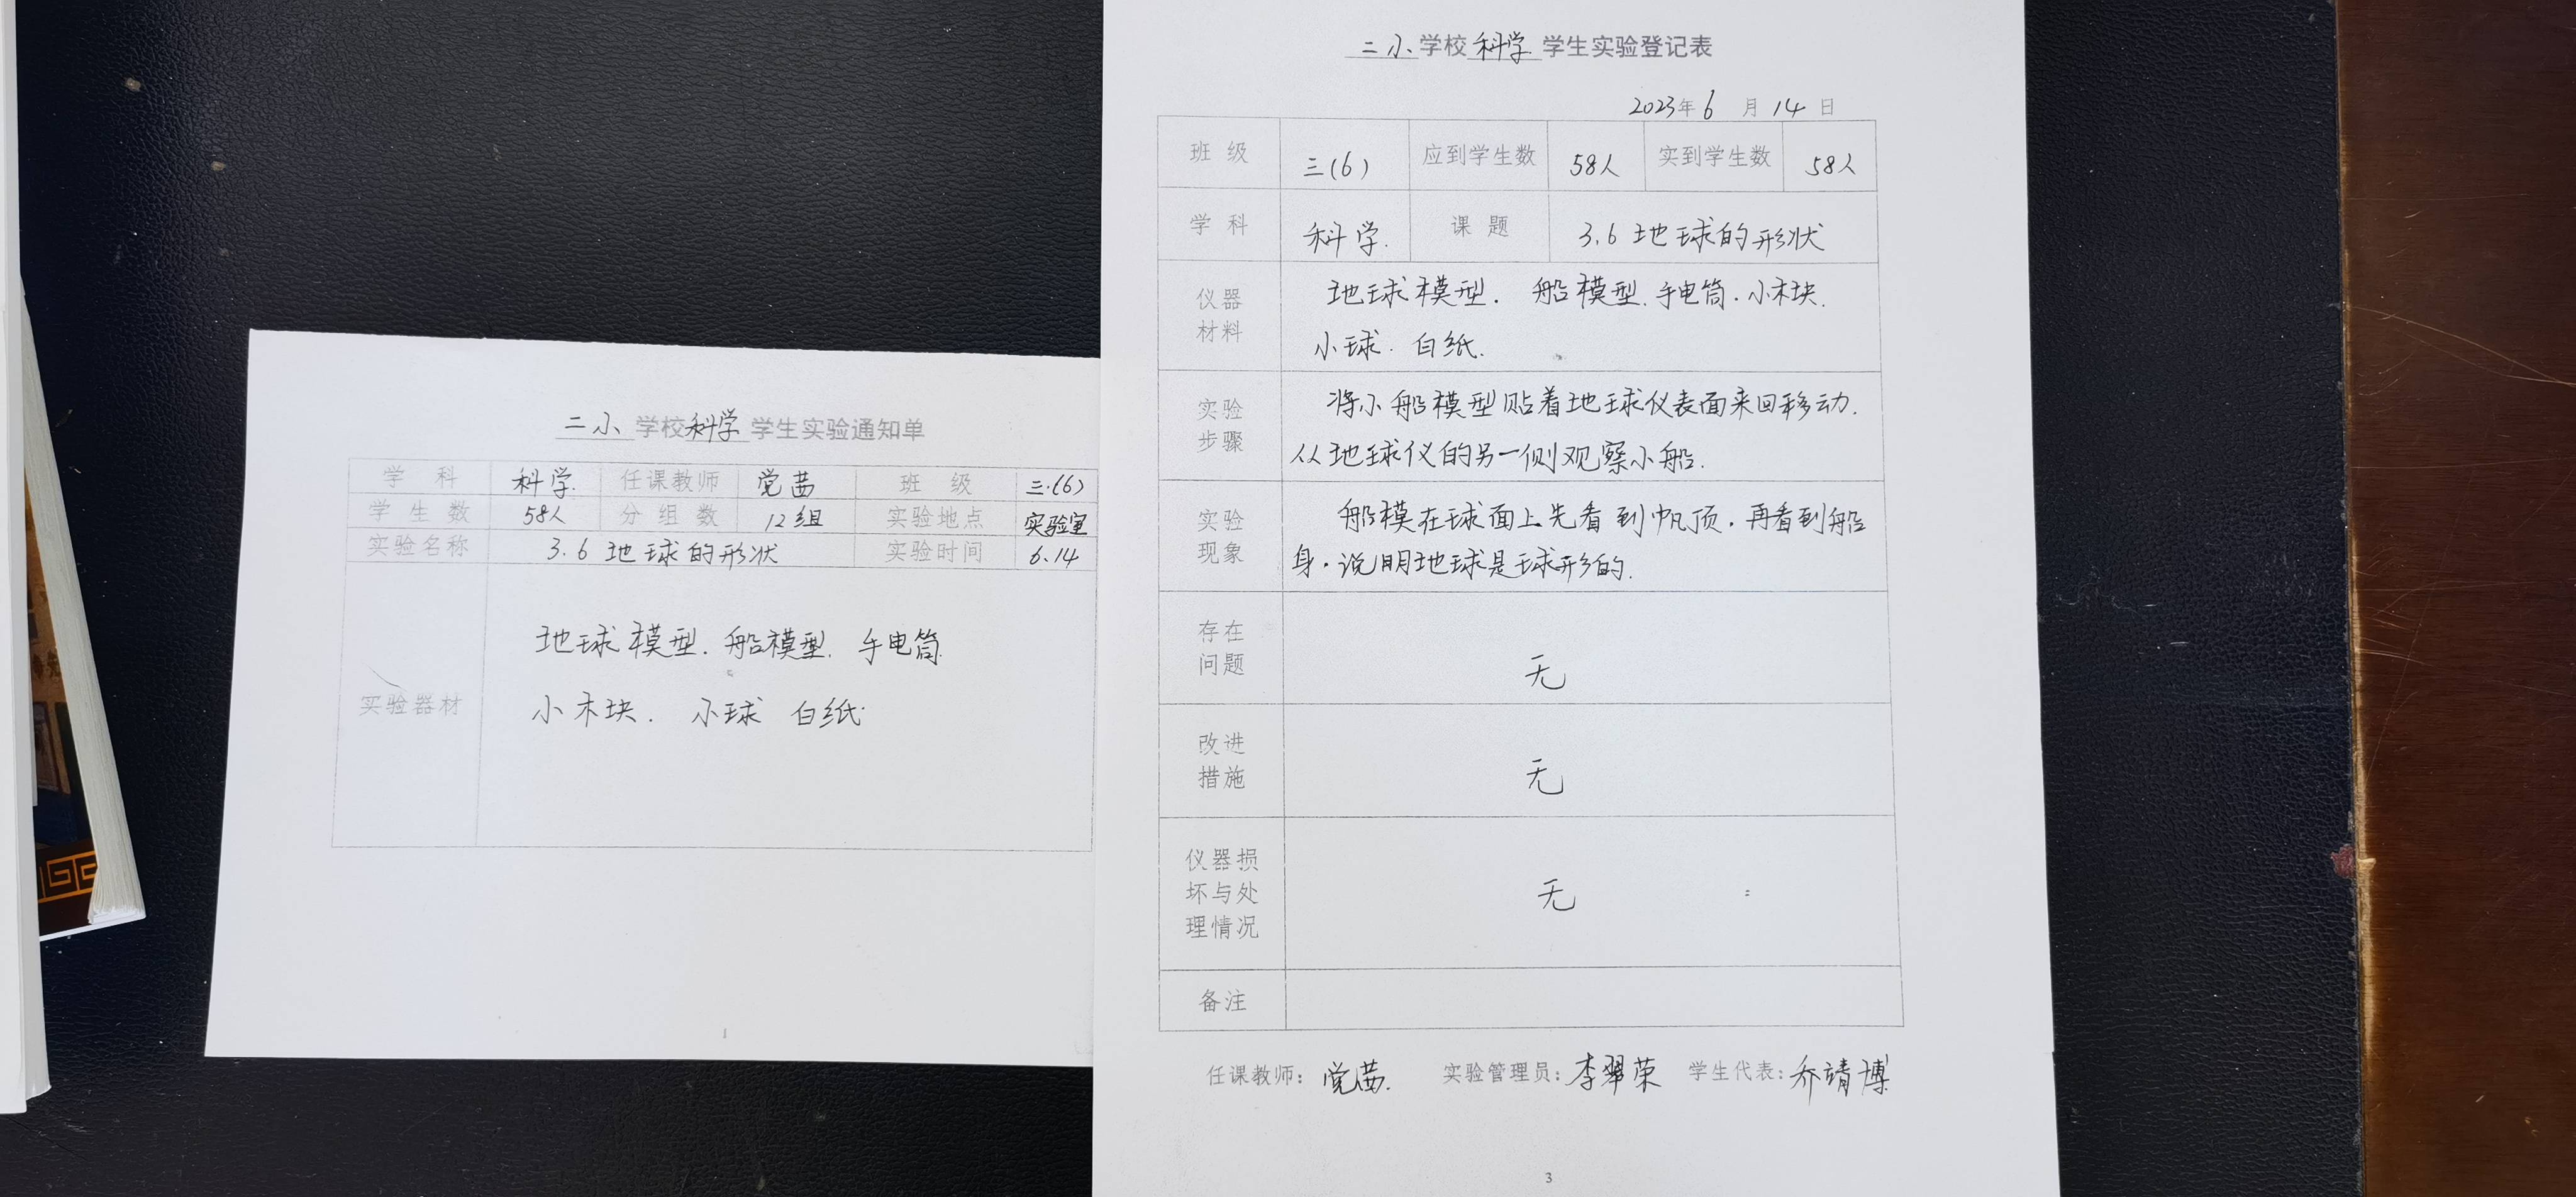 二小 学校 科学 学生实验通知单
学 科 科学. 任课教师 党茜 班 级 三.(6)
学 生 数 58人 分 组 数 12组 实验地点 实验室
实验名称 3.6 地球的形状 实验时间 6.14
实验器材
地球模型. 船模型. 手电筒.
小木块. 小球 白纸.
1
二小 学校 科学 学生实验登记表
2023年 6 月 14 日
班 级 三(6) 应到学生数 58人 实到学生数 58人
学 科 科学. 课 题 3.6 地球的形状
仪器
材料
地球模型. 船模型. 手电筒. 小木块.
小球. 白纸.
实验
步骤
将小船模型贴着地球仪表面来回移动.
从地球仪的另一侧观察小船.
实验
现象
船模在球面上先看到帆顶. 再看到船
身. 说明地球是球形的.
存在
问题
无
改进
措施
无
仪器损
坏与处
理情况
无
备注
任课教师: 党茜. 实验管理员: 李翠荣 学生代表: 乔靖博
3